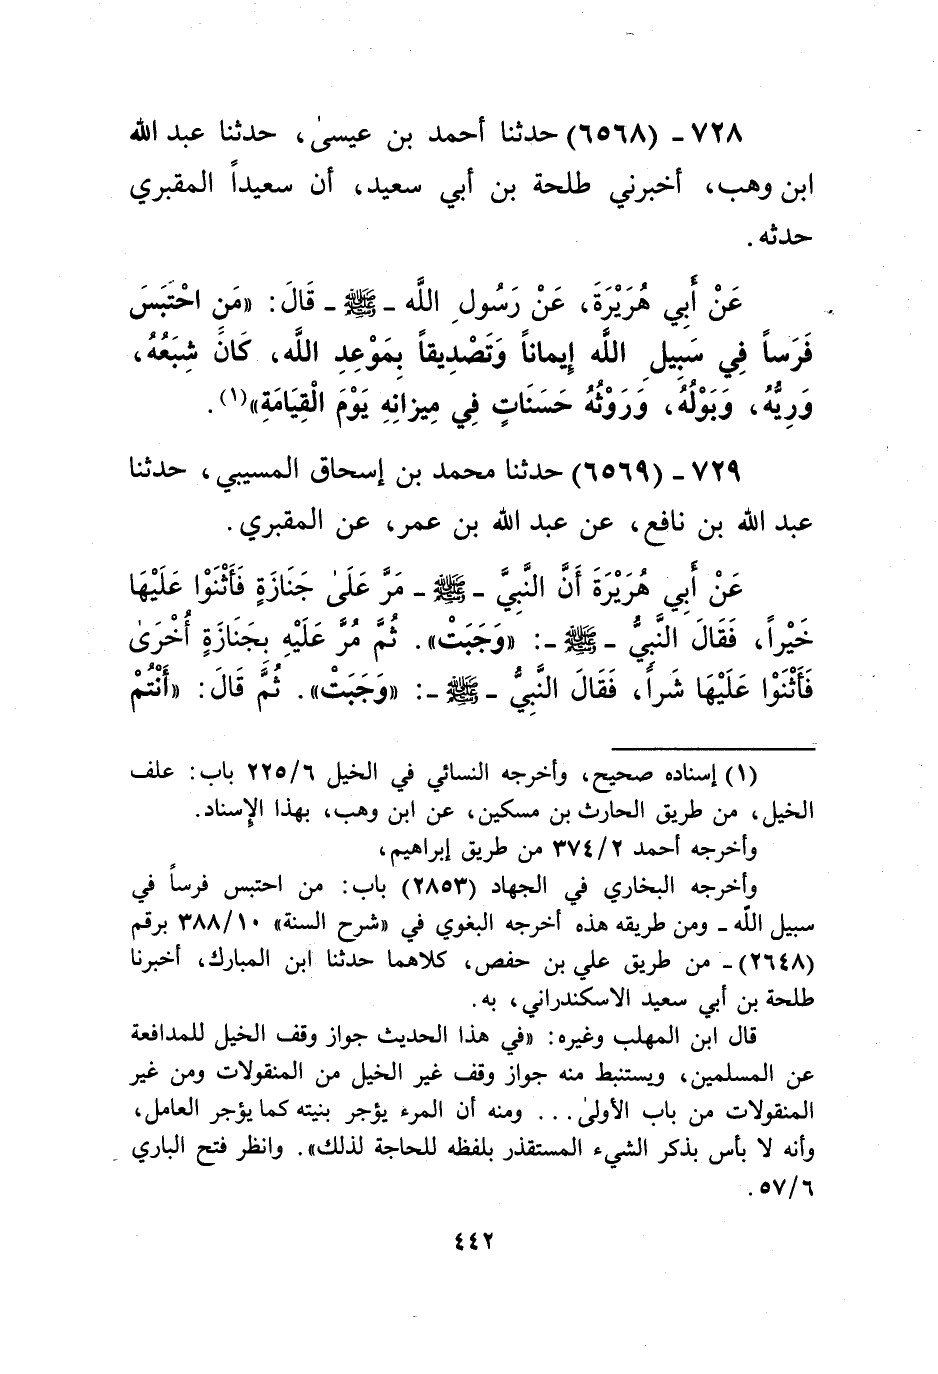 ٧٢٨ ـ (٦٥٦٨) حدثنا أحمد بن عيسىٰ، حدثنا عبد الله
ابن وهب، أخبرني طلحة بن أبي سعيد، أن سعيداً المقبري
حدثه.
عَنْ أَبِي هُرَيْرَةَ، عَنْ رَسُولِ اللَّه ـ ﷺ ـ قَالَ: «مَنِ احْتَبَسَ
فَرَساً فِي سَبِيلِ اللَّه إِيماناً وَتَصْدِيقاً بِمَوْعِدِ اللَّه، كَانَ شِبَعُهُ،
وَرِيُّهُ، وَبَوْلُهُ، وَرَوْثُهُ حَسَنَاتٍ فِي مِيزَانِهِ يَوْمَ الْقِيَامَةِ»(١).
٧٢٩ ـ (٦٥٦٩) حدثنا محمد بن إسحاق المسيبي، حدثنا
عبد الله بن نافع، عن عبد الله بن عمر، عن المقبري.
عَنْ أَبِي هُرَيْرَةَ أَنَّ النَّبِيَّ ـ ﷺ ـ مَرَّ عَلَىٰ جَنَازَةٍ فَأَثْنَوْا عَلَيْهَا
خَيْراً، فَقَالَ النَّبِيُّ ـ ﷺ ـ: «وَجَبَتْ». ثُمَّ مُرَّ عَلَيْهِ بِجَنَازَةٍ أُخْرَىٰ
فَأَثْنَوْا عَلَيْهَا شَراً، فَقَالَ النَّبِيُّ ـ ﷺ ـ: «وَجَبَتْ». ثُمَّ قَالَ: «أَنْتُمْ
(١) إسناده صحيح، وأخرجه النسائي في الخيل ٦/ ٢٢٥ باب: علف
الخيل، من طريق الحارث بن مسكين، عن ابن وهب، بهذا الإسناد.
وأخرجه أحمد ٢/ ٣٧٤ من طريق إبراهيم،
وأخرجه البخاري في الجهاد (٢٨٥٣) باب: من احتبس فرساً في
سبيل اللَّه ـ ومن طريقه هذه أخرجه البغوي في «شرح السنة» ١٠/ ٣٨٨ برقم
(٢٦٤٨) ـ من طريق علي بن حفص، كلاهما حدثنا ابن المبارك، أخبرنا
طلحة بن أبي سعيد الاسكندراني، به.
قال ابن المهلب وغيره: «في هذا الحديث جواز وقف الخيل للمدافعة
عن المسلمين، ويستنبط منه جواز وقف غير الخيل من المنقولات ومن غير
المنقولات من باب الأولىٰ... ومنه أن المرء يؤجر بنيته كما يؤجر العامل،
وأنه لا بأس بذكر الشيء المستقذر بلفظه للحاجة لذلك». وانظر فتح الباري
٦/ ٥٧.
٤٤٢